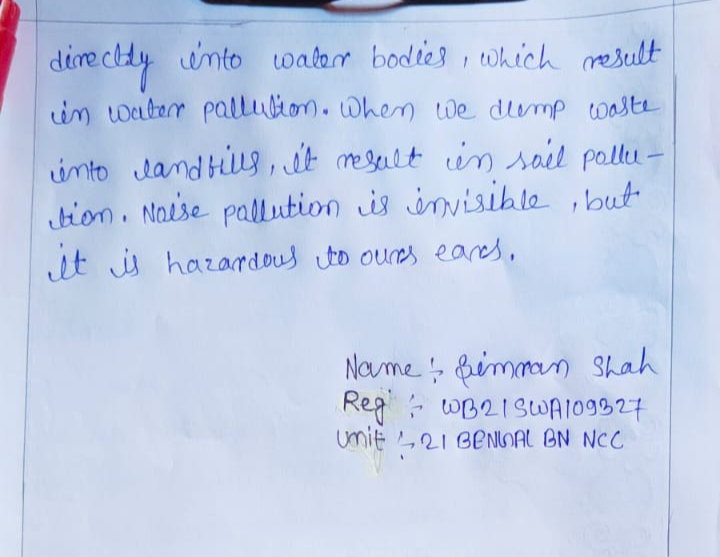 directly into water bodies, which result
in water pollution. When we dump waste
into landfills, it result in soil pollu-
tion. Noise pollution is invisible, but
it is hazardous to ours ears.
Name :- Simran Shah
Reg :- WB21SWA109327
Unit :- 21 BENGAL BN NCC